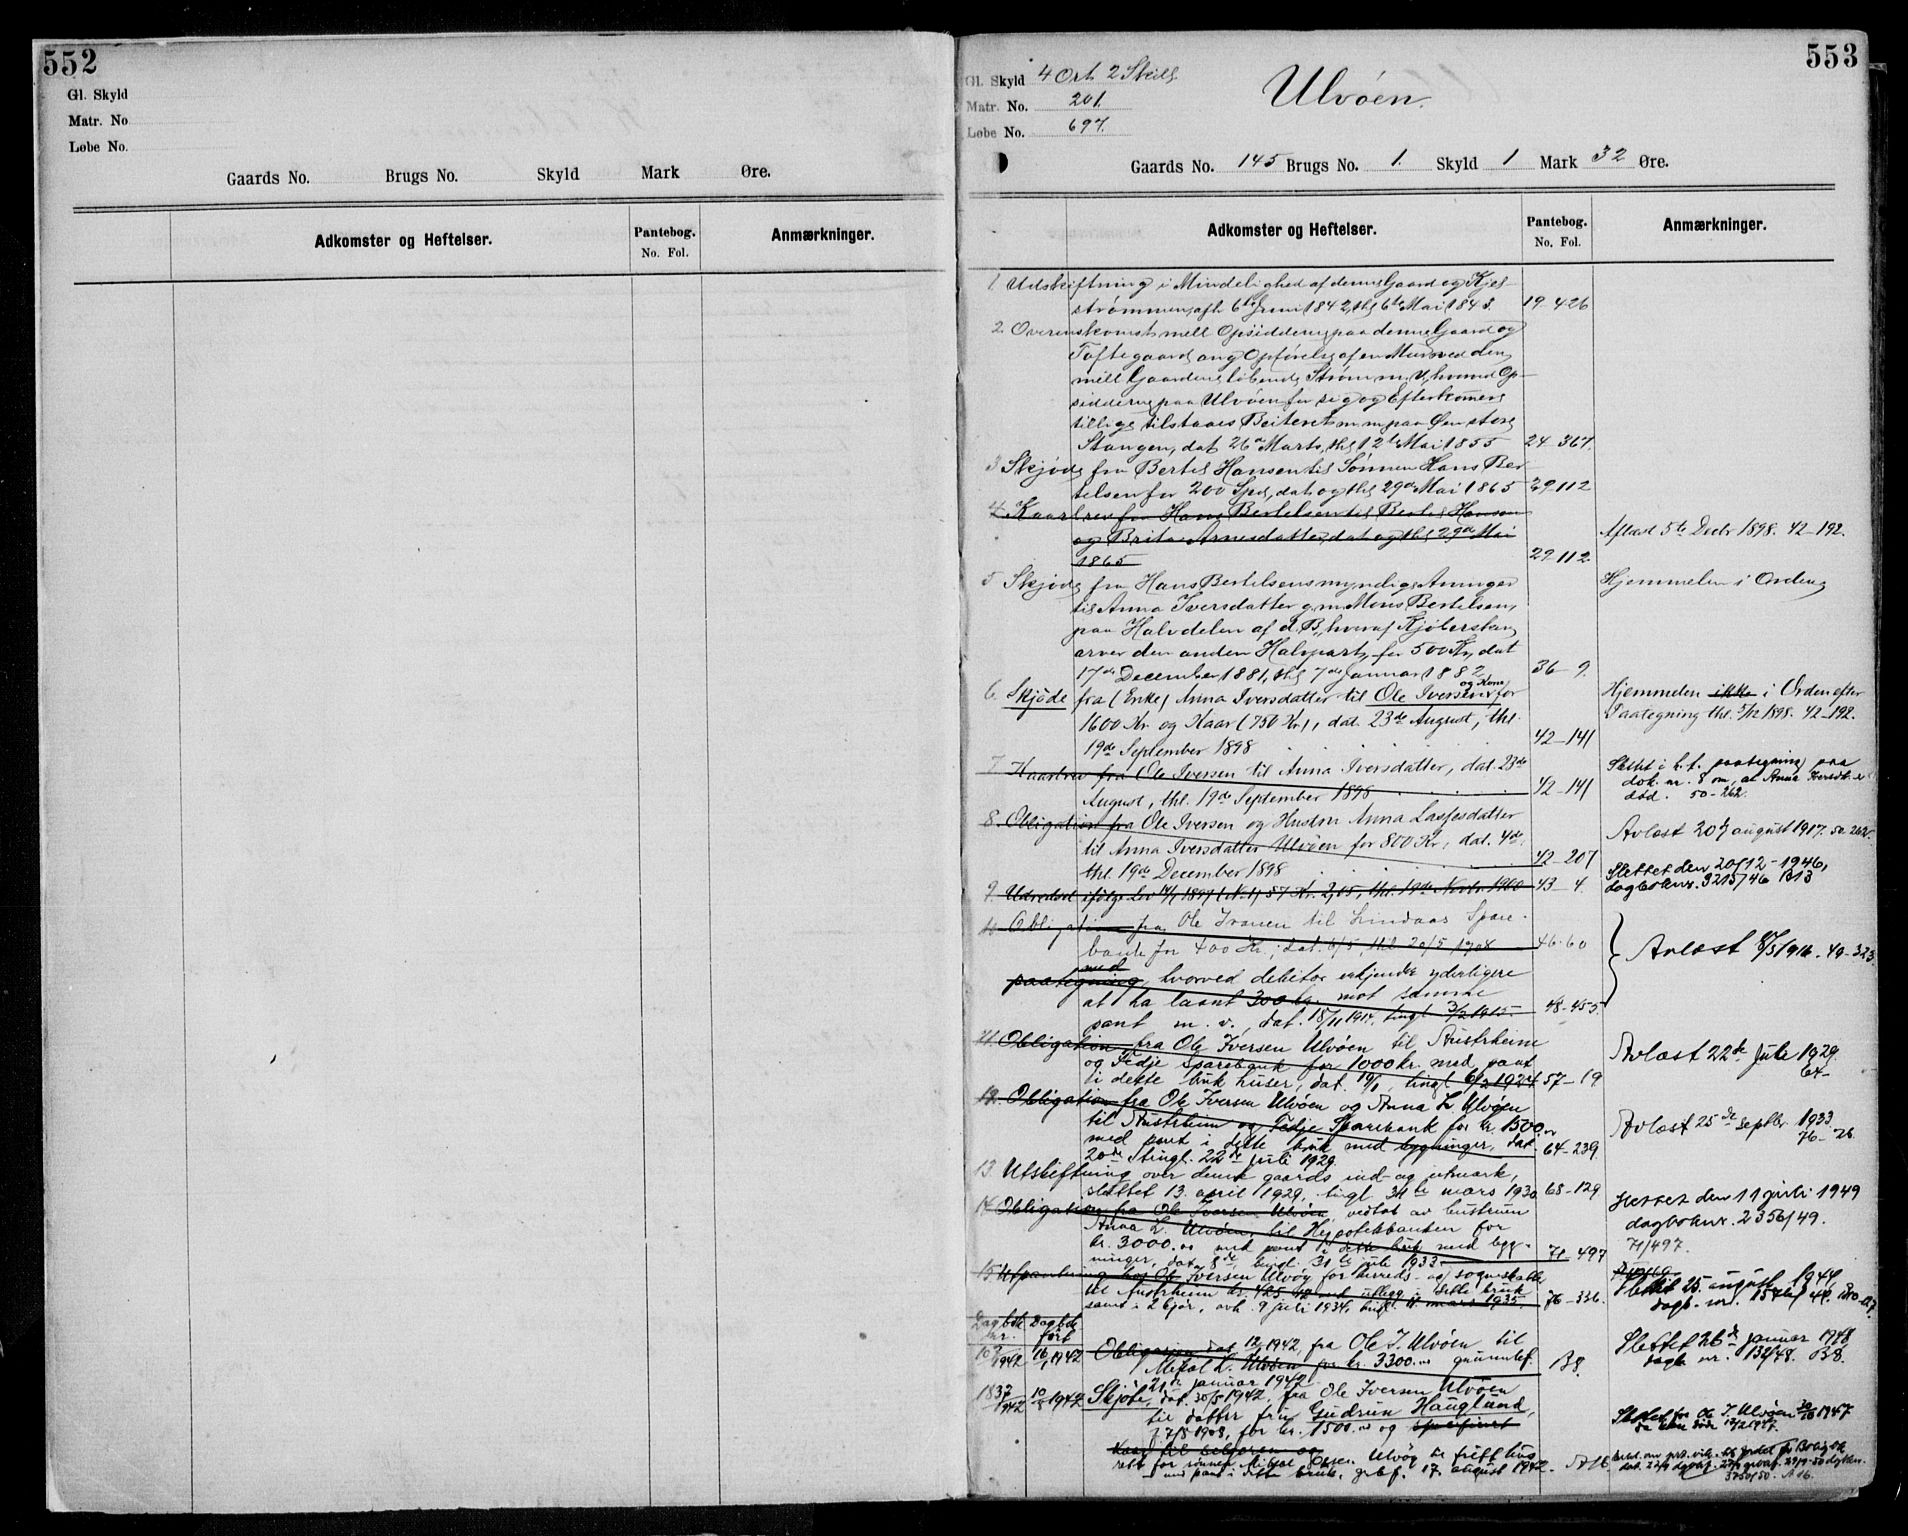 552
Gl. Skyld
Matr. No
Løbe No.
Gaards No. Brugs No. Skyld Mark Øre.
Adkomster og Heftelser.
Pantebog.
No. Fol.
Anmærkninger.
553
Gl. Skyld 4 Ort 2 Skill
Matr. No. 201.
Løbe No. 697.
Ulvöen.
Gaards No. 145 Brugs No. 1. Skyld 1 Mark 32 Øre.
Adkomster og Heftelser.
Pantebog.
No. Fol.
Anmærkninger.
1. Udskiftning i Mindelighed af denne Gaard og Kjel-
strömmen, afh 6te Juni 1842, thl 6te Mai 1843. 19-426
2. Overenskomst mell Opsidderne paa denne Gaard og
Toftegaard ang Opförelse af en Mur ved den
mell Gaardene löbende Ström m. v., hvorved Op-
sidderne paa Ulvöen for sig og Efterkomere
tillige tilstaaes Beiteret m m paa Öen store
Stangen, dat 26de Marts, thl 12te Mai 1855 24-367.
3 Skjöde fra Bertel Hansen til Sönnen Hans Ber-
telsen for 200 Spd, dat og thl 29de Mai 1865 29 112
4. Kaarbrev fra Hans Bertelsen til Bertel Hansen
og Brita Arnesdatter, dat og thl 29de Mai
1865 29 112
Aflæst 5te Decbr 1898. 42-192.
5 Skjöde fra Hans Bertelsens myndige Arvinger
til Anna Iversdatter g. m. Mons Bertelsen,
paa Halvdelen af d. B., hvoraf Kjöberskan
arver den anden Halvpart, for 500 Kr, dat
17de December 1881, thl 7de Januar 1882 36-9.
Hjemmelen i Orden
6. Skjöde fra (Enke) Anna Iversdatter til Ole Iversen og Kone, for
1600 Kr og Kaar (750 Kr), dat. 23de August, thl.
19de September 1898 42-141
Hjemmelen ikke i Orden efter
Paategning thl. 5/12 1898. 42-192.
7. Kaarbrev fra Ole Iversen til Anna Iversdatter, dat. 23de
August, thl. 19de September 1898 42-141
Slettet i h. t. paategning paa
dok. nr. 8 om, at Anna Iversdt. er
död. 50-262.
8. Obligation fra Ole Iversen og Hustru Anna Lassesdatter
til Anna Iversdatter Ulvöen for 800 Kr, dat. 4de
thl. 19de December 1898 42-207
Avlæst 20de august 1917. 50-262.
9. Udredsel ifölge Lov 14/7 1897 (Nr. 1) 57 Kr. 2,15, thl. 19de Novbr 1900 43-4.
Slettet den 20/12-1946,
dagboknr. 3215/46 B13
10 Obligation fra Ole Iversen til Lindaas Spare-
banke for 400 Kr, dat. 6/5, thl 20/5 1908 46-60
med
paategning, hvorved debitor erkjender yderligere
at ha laant 300 kr. mot samme
pant m. v., dat. 18/11 1914, tingl 3/2 1915. 48-455.
Avlæst 8/5 1916. 49-323.
11. Obligation fra Ole Iversen Ulvöen til Austrheim
og Fedje Sparebank for 1000 kr. med pant
i dette bruk huser, dat. 19/1, tingl 6/2 1924 57-19
Avlæst 22de juli 1929
64-
12. Obligation fra Ole Iversen Ulvöen og Anna L Ulvöen
til Austrheim og Fedje Sparebank for kr. 1500.00
med pant i dette bruk med bygninger, dat.
20de tingl. 22de juli 1929 64-239
Avlæst 25de septbr 1933
76-26.
13. Utskiftning over denne gaards ind- og utmark,
sluttet 13. april 1929, tingl. 31te mars 1930 68-129
14. Obligation fra Ole Iversen Ulvöen vedtat av hustruen
Anna L. Ulvöen, til Hypotekbanken for
kr. 3000.00 med pant i dette bruk med byg-
ninger, dat. 8de, tingl. 31te juli 1933. 71-497
Slettet den 11 juli 1949
dagboknr. 2356/49.
71/497.
15 Utpantning hos Ole Iversen Ulvöy for herreds- og sogneskatter
til Austrheim kr. 425.42 med utlegg i dette bruk
samt i 2 kjör, avh. 9 juli 1934, tingl. 11 mars 1935. 76-336.
Slettet 25 august 1944
Dagbk Dagbk
nr. fört
167/1942 16/1 1942 Obligasjon dat 12/1 1942, fra Ole I. Ulvöen til
Mikal L. Ulvöen for kr. 3300.00 grunnbf.
21de januar 1942 B8.
Slettet 26de januar 1948
dagb. nr. 132/48. B8.
1837/1942 10/8 1942 Skjöte, dat. 30/5 1942, fra Ole Iversen Ulvöen
til datter fru Gudrun Hauglund,
f. 7/8 1908, for kr. 1500.00 og spesifisert
kaar til selgeren og
rett for sönnen Mikal Olsen Ulvöy til fritt hus
med pant i dette bruk, grbf. 17. august 1942. A16.
Slettet for Ole I. Ulvöen 30/10 1947
da han döde 12/2 1947.
3750/50. A 16.